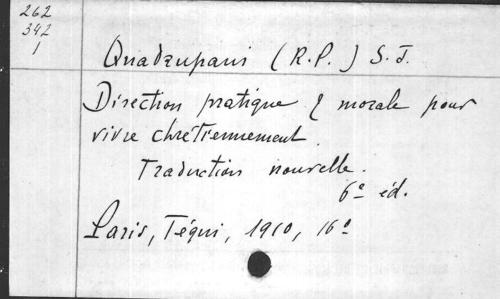 262
342
1
Quadrupani (R.P.) S.J.
Direction pratique & morale pour
vivre chrétiennement
Traduction nouvelle.
6º éd.
Paris, Téqui, 1910, 16º